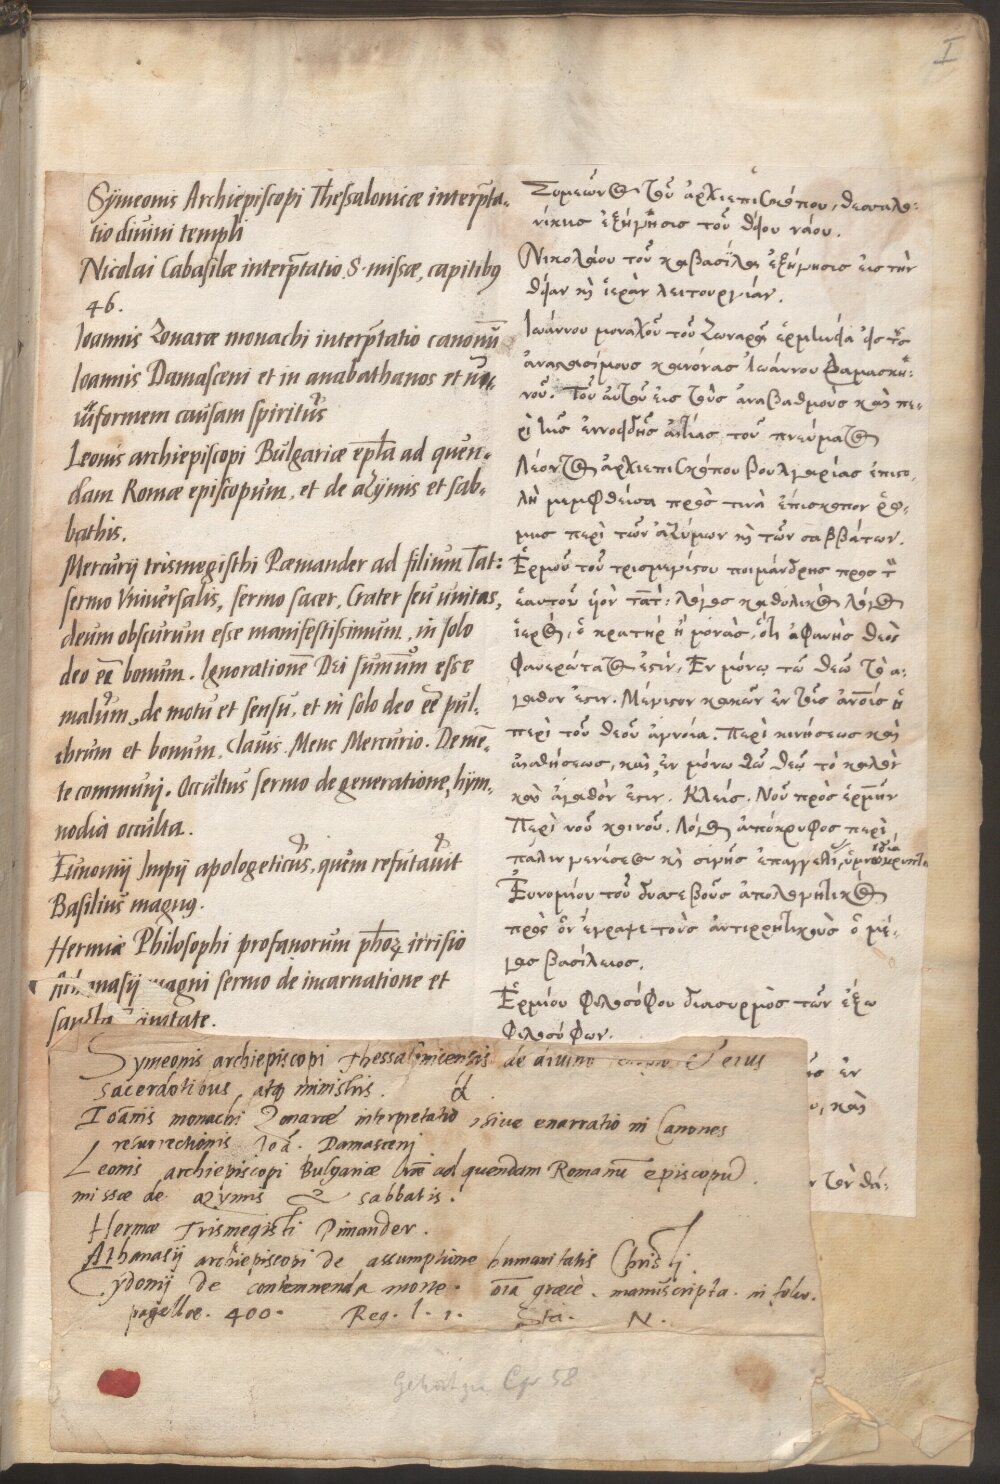 I
Sÿmeonis Archiepiscopi Thessalonicæ interp̃ta-
tio diuini templi
Nicolai Cabasilæ interp̃tatio, S. missæ, capitibus
46.
Ioannis Zonaræ monachi interp̃tatio canonũ
Ioannis Damasceni et in anabathanos et
iuformem causam spiritus
Leonis archiepiscopi Bulgariæ ep̃la ad quen-
dam Romæ episcopum, et de azÿmis et sab-
bathis.
Mercurij trismegisthi Pæmander ad filium Tat:
sermo Vniuersalis, sermo sacer, Crater seu unitas,
deum obscurum esse manifestissimum, in solo
deo eẽ bonum. Ignorationẽ Dei sum̃um esse
malum, de motu et sensu, et in solo deo eẽ pul-
chrum et bonum. Clauis. Mens Mercurio. De mẽ-
te communj. Occultus sermo de generatione, hÿm-
nodia occulta.
Eunomij Impij apologeticus, quem refutauit
Basilius magnus.
Hermiæ Philosophi profanorum ph̃orꝫ irrisio
magni sermo de incarnatione et
sancta
Συμεῶνος τοῦ ἀρχιεπισκόπου, θεσσαλο-
νίκης ἐξήγησις τοῦ θείου ναοῦ.
Νικολάου τοῦ καβασίλα ἐξήγησις εἰς τὴν
θείαν κὶ ἱερὰν λειτουργίαν.
Ἰωάννου μοναχοῦ τοῦ Ζωναρᾶ ἑρμηνεία εἰς τοὺς
ἀναστασίμους κανόνας Ἰωάννου Δαμασκη-
νοῦ. Τοῦ αὐτοῦ εἰς τοὺς ἀναβαθμοὺς καὶ πε-
ρὶ τῆς αἰτίας τοῦ πνεύματος
Λέοντος ἀρχιεπισκόπου βουλγαρίας ἐπιστο-
λὴ πεμφθεῖσα πρὸς τινὰ ἐπίσκοπον ῥώ-
μης περὶ τῶν ἀζύμων κὶ τῶν σαββάτων.
Ἑρμοῦ τοῦ τρισμεγίστου ποιμάνδρης πρὸς τὸν
ἑαυτοῦ ὑιὸν τὰτ: λόγος καθολικὸς λόγος
ἱερὸς, ὁ κρατὴρ ἢ μονὰς, ὅτι ἀφανὴς θεὸς
φανερώτατος ἐστίν, Ἐν μόνῳ τῶ θεῶ τὸ ἀ-
γαθὸν ἐστιν. Μέγιστον κακῶν ἐν τοῖς ἀνοις ἡ
περὶ τοῦ θεοῦ ἀγνοία. Περὶ κινήσεως καὶ
αἰσθήσεως, καὶ, ἐν μόνω τῶ θεῶ τὸ καλὸν
καὶ ἀγαθὸν ἐστιν. Κλείς. Νοῦ πρὸς ἑρμῆν
Περὶ νοῦ κοινοῦ. Λόγος ἀπόκρυφος περὶ
παλιγγενέσεως κὶ σιγῆς ἐπαγγελίας, ὑμνωδία κρυπτὴ
Εὐνομίου τοῦ δυσσεβοῦς ἀπολογητικὸς
πρὸς ὃν ἔγραψε τοὺς ἀντιρρητικοὺς ὁ μέ-
γας βασίλειος.
Ἑρμίου φιλοσόφου διασυρμὸς τῶν ἔξω
φιλοσόφων.
ἐν
καὶ
τὸν θά-
Symeonis archiepiscopi Thessalonicensis de diuino templo et eius
sacerdotibus, atq ministris.
Ioãnis monachi Zonaræ interpretatio siue enarratio in Canones
resurrectionis Ioã. Damascenj
Leonis archiepiscopi Bulgariæ lr̃æ ad quendam Romanũ episcopũ
missæ de azymis & sabbatis.
Hermæ Trismegisti Pimander.
Athanasij archiepiscopi de assumptione humanitatis Christj.
Cydonij de contemnenda morte. oĩa græcè. manuscripta. in folio.
pagellæ. 400. Reg. l. 1. Sta. N.
Cp 58